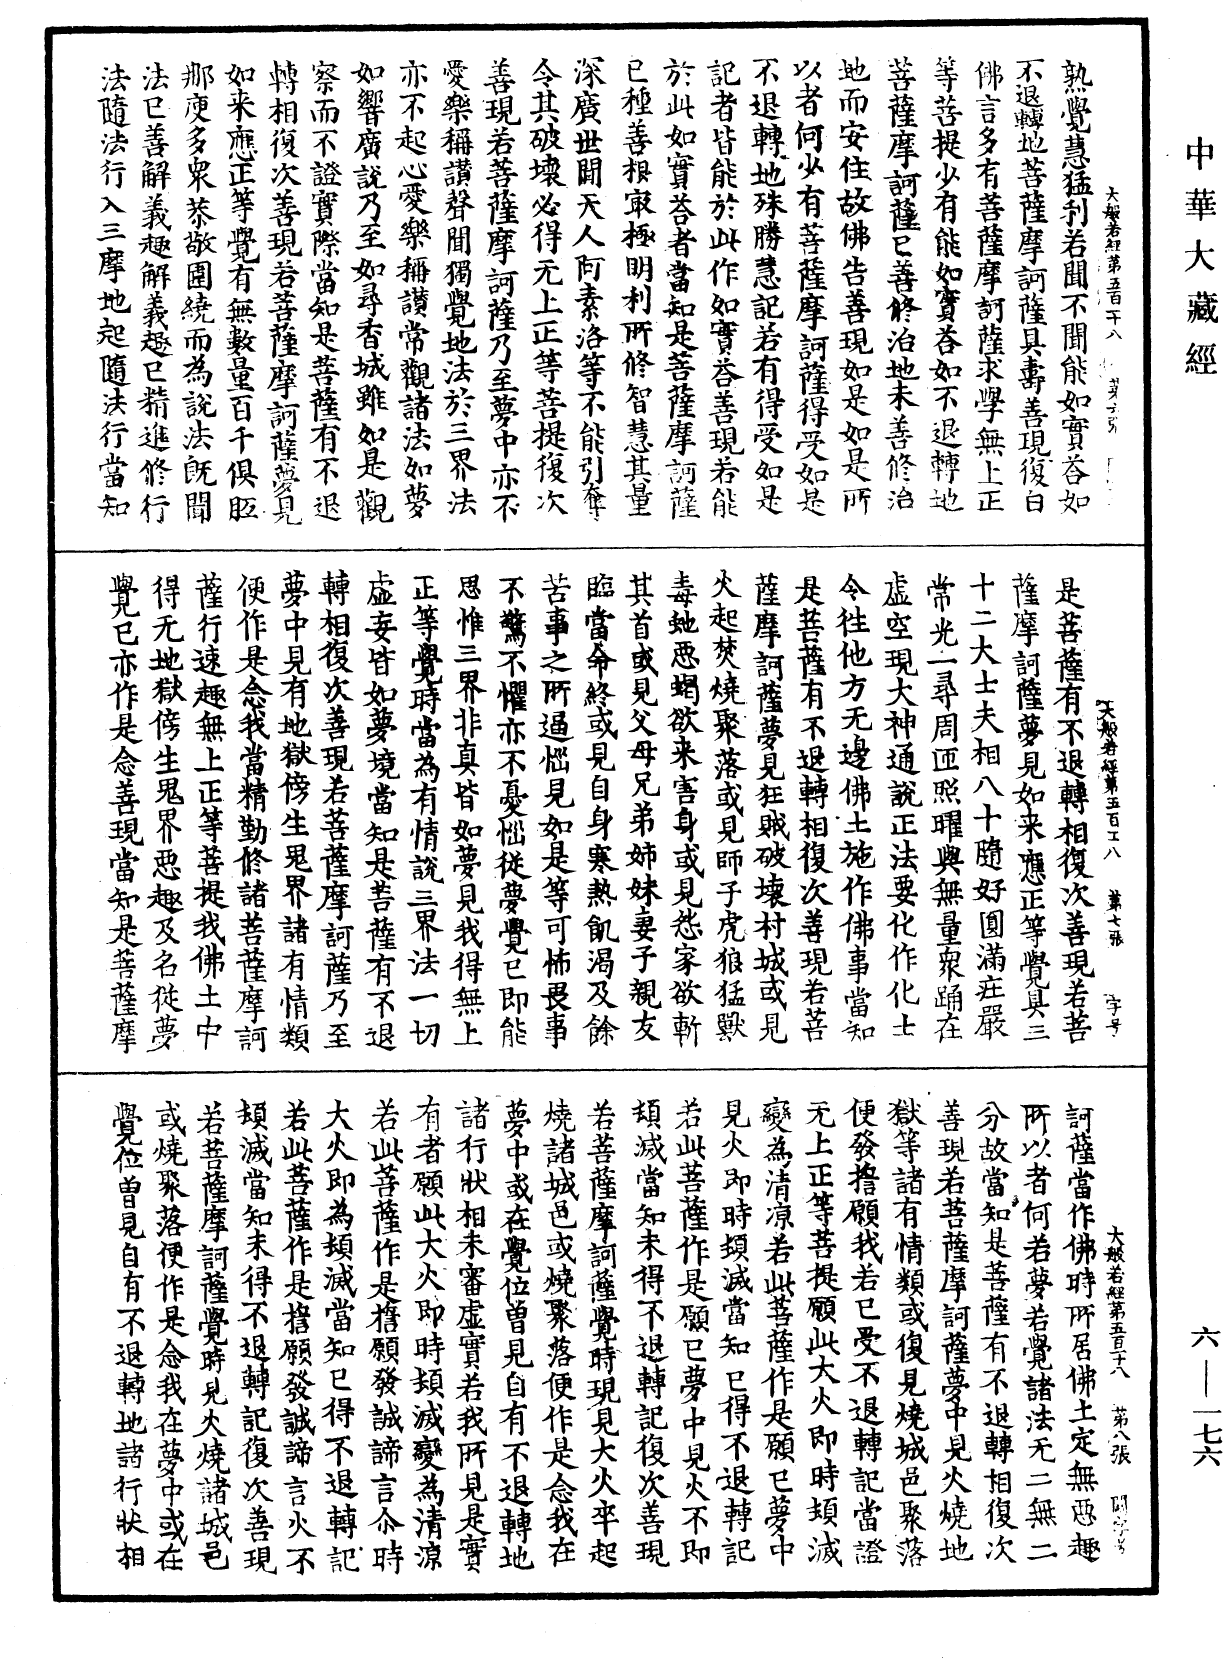 中華大藏經
大般若經第五百二十八 第六張
熟覺慧猛利若聞不聞能如實荅如
不退轉地菩薩摩訶薩具壽善現復白
佛言多有菩薩摩訶薩求學無上正
等菩提少有能如實荅如不退轉地
菩薩摩訶薩已善修治地未善修治
地而安住故佛告善現如是如是所
以者何少有菩薩摩訶薩得受如是
不退轉地殊勝慧記若有得受如是
記者皆能於此作如實荅善現若能
於此如實荅者當知是菩薩摩訶薩
已種善根冣極明利所修智慧其量
深廣世間天人阿素洛等不能引奪
令其破壞必得无上正等菩提復次
善現若菩薩摩訶薩乃至夢中亦不
愛樂稱讚聲聞獨覺地法於三界法
亦不起心愛樂稱讚常觀諸法如夢
如響廣說乃至如尋香城雖如是觀
察而不證實際當知是菩薩有不退
轉相復次善現若菩薩摩訶薩夢見
如来應正等覺有無數量百千俱胝
那庾多衆恭敬圍繞而為說法旣聞
法已善解義趣解義趣已精進修行
法隨法行入三摩地起隨法行當知
大般若經第五百二八 第七張 字号
是菩薩有不退轉相復次善現若菩
薩摩訶薩夢見如来應正等覺具三
十二大士夫相八十隨好圓滿莊嚴
常光一尋周匝照曜與無量衆踊在
虛空現大神通說正法要化作化士
令往他方无邊佛土施作佛事當知
是菩薩有不退轉相復次善現若菩
薩摩訶薩夢見狂賊破壞村城或見
火起焚燒聚落或見師子虎狼猛獸
毒虵惡蝎欲来害身或見怨家欲斬
其首或見父母兄弟姊妹妻子親友
臨當命終或見自身寒熱飢渴及餘
苦事之所逼惱見如是等可怖畏事
不驚不懼亦不憂惱從夢覺已即能
思惟三界非真皆如夢見我得無上
正等覺時當為有情說三界法一切
虛妄皆如夢境當知是菩薩有不退
轉相復次善現若菩薩摩訶薩乃至
夢中見有地獄傍生鬼界諸有情類
便作是念我當精勤修諸菩薩摩訶
薩行速趣無上正等菩提我佛土中
得无地獄傍生鬼界惡趣及名從夢
覺已亦作是念善現當知是菩薩摩
大般若經第五百二十八 第八張
訶薩當作佛時所居佛土定無惡趣
所以者何若夢若覺諸法无二無二
分故當知是菩薩有不退轉相復次
善現若菩薩摩訶薩夢中見火燒地
獄等諸有情類或復見燒城邑聚落
便發擔願我若已受不退轉記當證
无上正等菩提願此大火即時頓滅
變為清凉若此菩薩作是願已夢中
見火即時頓滅當知已得不退轉記
若此菩薩作是願已夢中見火不即
頓滅當知未得不退轉記復次善現
若菩薩摩訶薩覺時現見大火卒起
燒諸城邑或燒聚落便作是念我在
夢中或在覺位曽見自有不退轉地
諸行狀相未審虛實若我所見是實
有者願此大火即時頓滅變為清凉
若此菩薩作是擔願發誠諦言尒時
大火即為頓滅當知已得不退轉記
若此菩薩作是擔願發誠諦言火不
頓滅當知未得不退轉記復次善現
若菩薩摩訶薩覺時見火燒諸城邑
或燒聚落便作是念我在夢中或在
覺位曽見自有不退轉地諸行狀相
六—一七六